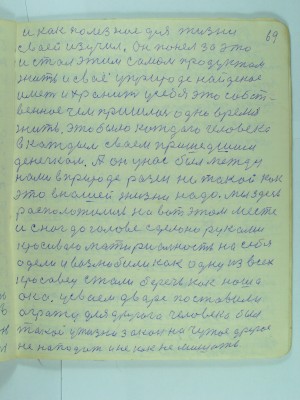 69
и как полезное для жизни
своей изучил. Он понел за это
и стал этим самым продуктом
жить и своё в природе найденое
имет и хранит у себя это собст-
венное чем пришлась одно время
жить. это было каждого человека
в каждым своем пришедшим
денёчком. А он у нас был между
нами в природе разен не такой как
это в нашей жизни надо. мы здесь
расположились на вот этом месте
и с ног до голове сделано руками
красивою материяльность на себя
одели и возлюбили как одну из всех
красавец стали беречь как наше
око. у своем дворе поставили
ограду для другого человека был
такой указ на закон на чужое другое
не находит и не как не